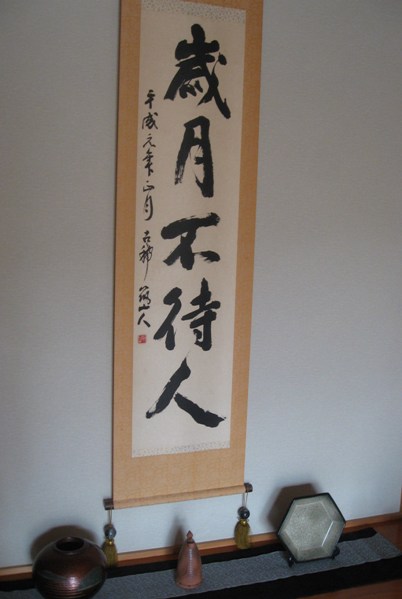 歳月不待人
平成元年正月